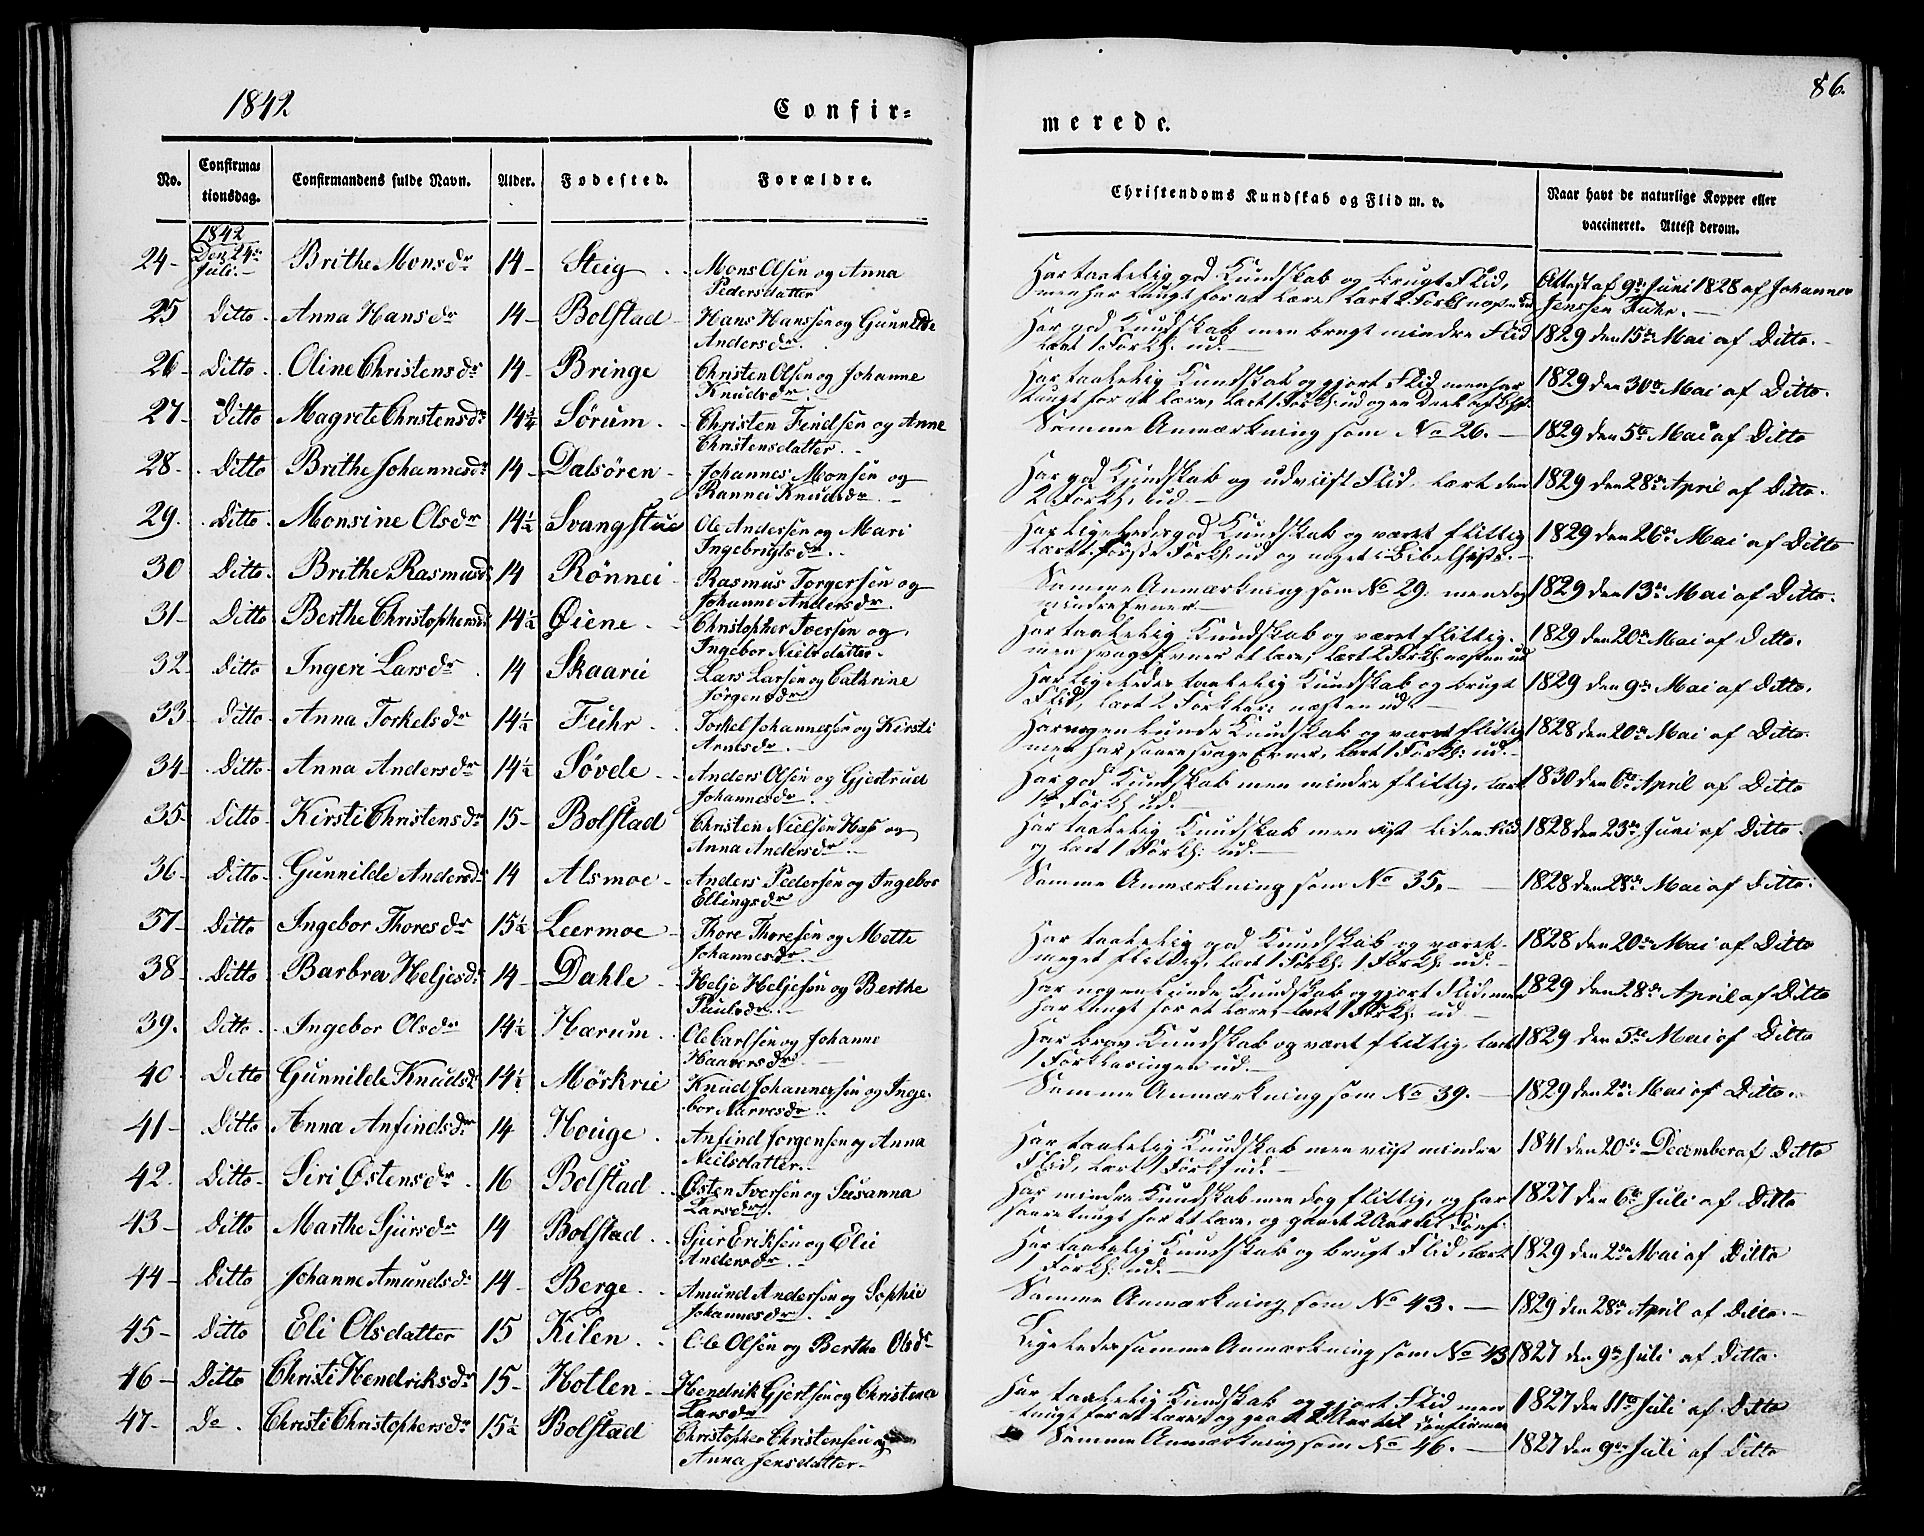 1842
Confir=
merede.
86.
No.
Confirma=
tionsdag.
Confirmandens fulde Navn.
Alder.
Fødested.
Forældre.
Christendoms Kundskab og Flid m. v.
Naar havt de naturlige Kopper eller
vaccineret. Attest derom.
1842
24- Den 24de Juli.- Brithe Monsdr 14- Steig Mons Olsen og Anna
Pedersdatter
Har taalelig god Kundskab og brugt Flid,
men har tungt for at lære, lært 2 Forkl. næsten ud
Attest af 9de Juni 1828 af Johannes
Jenssen Fuhr.-
25 Ditto- Anna Hansdr 14- Bolstad Hans Hanssen og Gunnilde
Andersdr
Har god Kundskab men brugt mindre Flid
lært 1 Forkl. ud.-
1829 den 15de Mai af Ditto.-
26- Ditto- Oline Christensdr 14- Bringe Christen Olsen og Johanne
Knudsdr
Har taalelig Kundskab og gjort Flid men har
tungt for at lære, lært 1 Forkl. ud og en Deel af
1829 den 30te Mai af Ditto.
27- Ditto Magrete Christensdr 14¼ Sørum Christen Findsen og Anne
Christensdatter
Samme Anmærkning som No 26.- 1829 den 5te Mai af Ditto
28- Ditto Brithe Johannesdr 14- Dalsøren Johannes Monsen og
Rannei Knudsdr
Har god Kundskab og udviist Flid, lært den
2 Forkl. ud.-
1829 den 28de April af Ditto.
29. Ditto- Monsine Olsdr 14½ Svangstue Ole Andersen og Mari
Ingebrigtsdr
Har ligeledes god Kundskab og været flittig
lært første Forkl. ud og noget i Bibelhist.-
1829 den 26de Mai af Ditto
30 Ditto- Brithe Rasmusd 14 Rønnei Rasmus Torgersen og
Johanne Andersdr
Samme Anmærkning som No 29. men dog
mindre Evner
1829 den 13de Mai af Ditto.
31- Ditto Berthe Christophersd 14½ Øiene Christopher Iversen og
Ingebor Nielsdatter.
Har taalelig Kundskab og været flittig.
men svage Evner at lære, lært 2 Forkl. næsten ud
1829 den 20de Mai af Ditto.
32- Ditto Ingeri Larsdr 14 Skaarii Lars Larsen og Cathrine
Jørgensdr
Har ligeledes taalelig Kundskab og brugt
Flid, lært 2 Forklar: næsten ud
1829 den 9de Mai af Ditto.
33 Ditto- Anna Torkelsdr 14½ Fuhr Torkel Johannessen og Kirsti
Arnesdr
Har nogenlunde Kundskab og været flittig
men har saare svage Evner, lært 1 Forkl: ud.-
1828 den 20de Mai af Ditto.
34- Ditto- Anna Andersdr 14½ Søvde Anders Olsen og Gjertrud
Johannesdr
Har god Kundskab men mindre flittig, lært
1 Forkl. ud.-
1830 den 6te April af Ditto
35 Ditto- Kirsti Christensdr 15- Bolstad Christen Nielsen og
Anna Andersdr
Har taalelig Kundskab men viist liden Flid
og lært 1 Forkl. ud.-
1828 den 23de Juni af Ditto.
36- Ditto- Gunnilde Andersdr 14 Alsmoe Anders Pedersen og Ingebor
Ellingsdr
Samme Anmærkning som No 35.- 1828 den 28de Mai af Ditto.
37- Ditto Ingebor Thoresdr 15½ Leermoe Thore Thoresen og Mette
Johannesdr
Har taalelig god Kundskab og været
meget flittig, lært 1 Forkl. 1 Forkl. ud.-
1828 den 20de Mai af Ditto
38- Ditto Barbra Heljesdr 14- Dahle Helje Heljesen og Berthe
Poulsdr
Har nogenlunde Kundskab og gjort Flid, men
har tungt for at lære, lært 1 Forkl. ud
1829 den 28de April af Ditto
39. Ditto- Ingebor Olsdr 14½ Hærum Ole Carlsen og Johanne
Haaversdr
Har brav Kundskab og været flittig, lært
1 Forklaringen ud.-
1829 den 5te Mai af Ditto
40- Ditto Gunnilde Knudsdr 14½ Mørkrie Knud Johannessen og Inge-
bor Narvesdr
Samme Anmærkning som No 39.- 1829 den 2de Mai af Ditto.
41- Ditto Anna Anfindsdr 14 Houge Anfind Jørgensen og Anna
Nielsdatter.
Har taalelig Kundskab men viist mindre
Flid, lært 1 Forkl ud.-
1841 den 20de December af Ditto
42. Ditto- Siri Østensdr 16 Bolstad Østen Iversen og Susanna
Larsdr
Har mindre Kundskab men dog flittig, og har
saare tungt for at lære, og gaaet 2 Aar til Conf.
1827 den 6te Juli af Ditto
43- Ditto Marthe Sjursdr 14 Bolstad Sjur Eriksen og Elii
Andersdr
Har taalelig Kundskab og brugt Flid, lært
1 Forkl. ud.-
1829 den 2de Mai af Ditto
44- Ditto Johanne Amundsdr 14- Berge Amund Andersen og Sophie
Johannesdr
Samme Anmærkning som No 43.- 1829 den 28de April af Ditto.-
45- Ditto Eli Olsdatter 15 Kilen Ole Olsen og Berthe Olsdr
Ligeledes samme Anmærkning som No 43 1827 den 9de Juli af Ditto.
46- Ditto Christi Hendriksdr 15- Hollen Hendrik Gjertsen og Christena
Larsdr
Har taalelig Kundskab og gjort Flid men
tungt for at lære, og gaaet 2 Aar til Confirmen
1827 den 11te Juli af Ditto
47- Do. Christi Christophersdr 15½ Bolstad Christopher Christensen og
Anna Jensdatter-
Samme Anmærkning som No 46.- 1827 den 9de Juli af Ditto